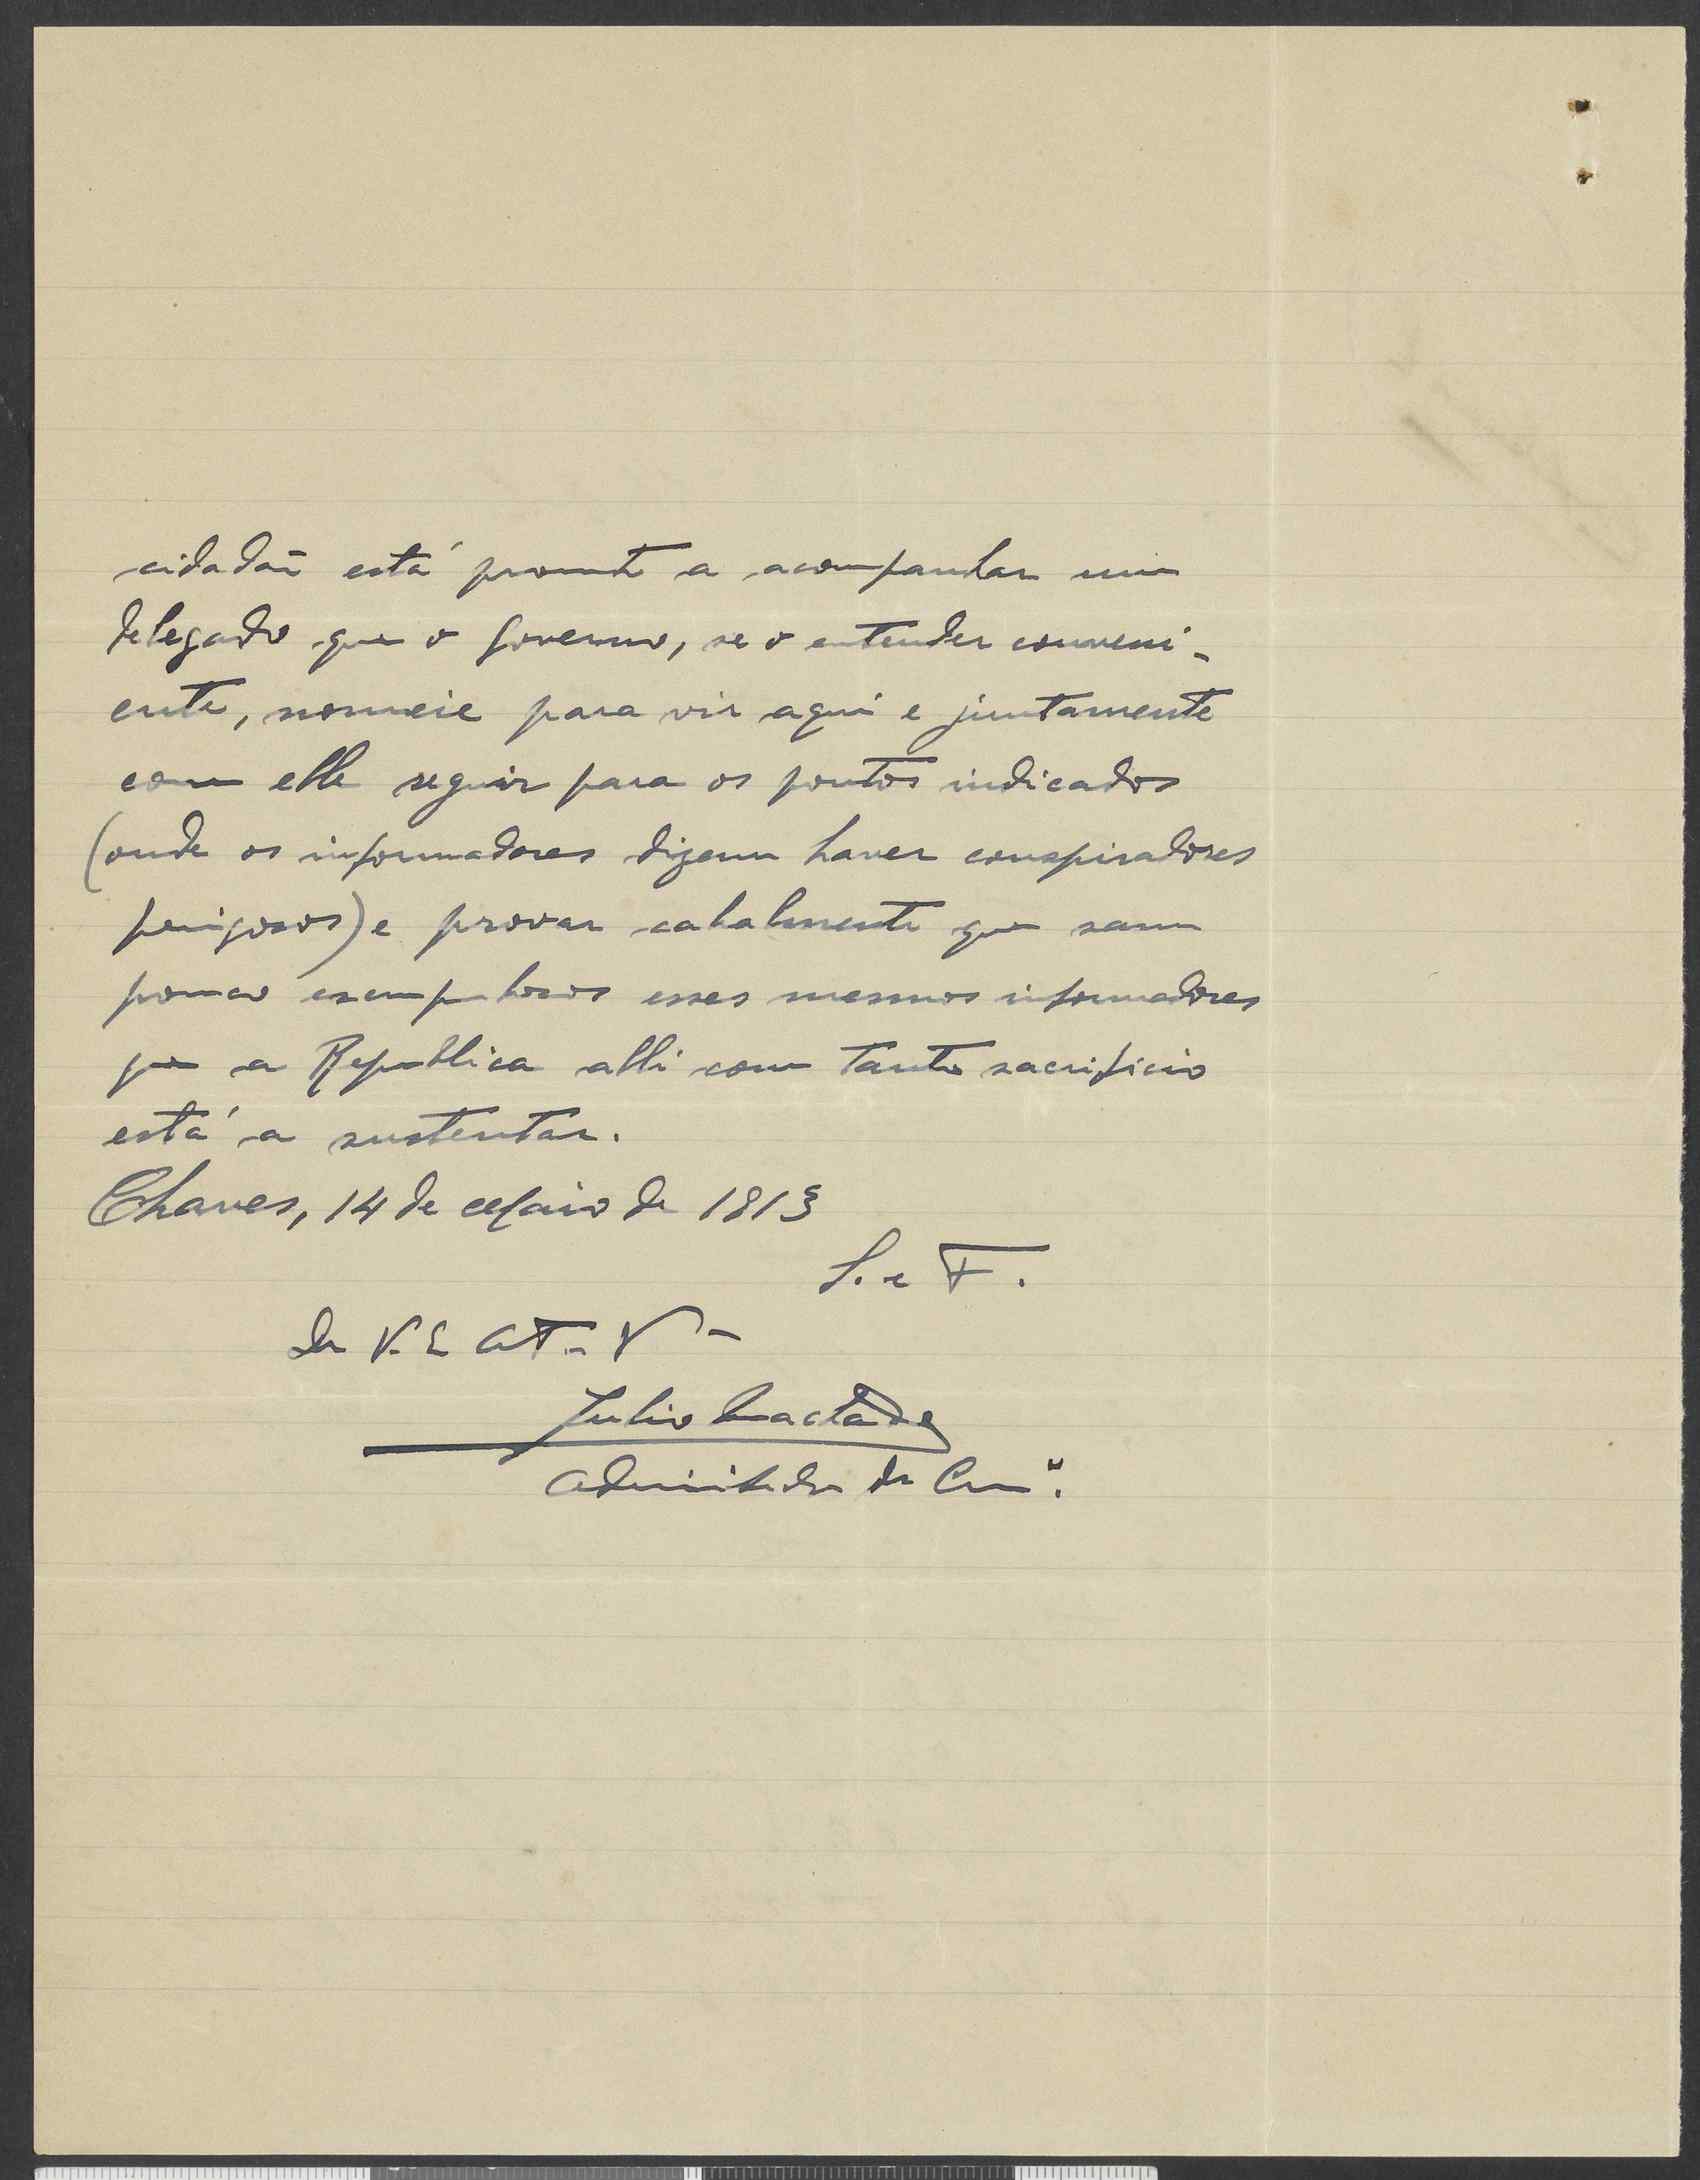 cidadão está prompto a acompanhar um
delegado que o Governo, se o entender conveni-
ente, nomeie para vir aqui e juntamente
com elle seguir para os pontos indicados
(onde os informadores dizem haver conspiradores
perigosos) e provar cabalmente que sam
pouco escrupulosos esses mesmos informadores
que a Republica alli com tanto sacrificio
está a sustentar.
Chaves, 14 de Maio de 1913
S. e F.
De V. E. At. V
Julio
Administrador do Con.º